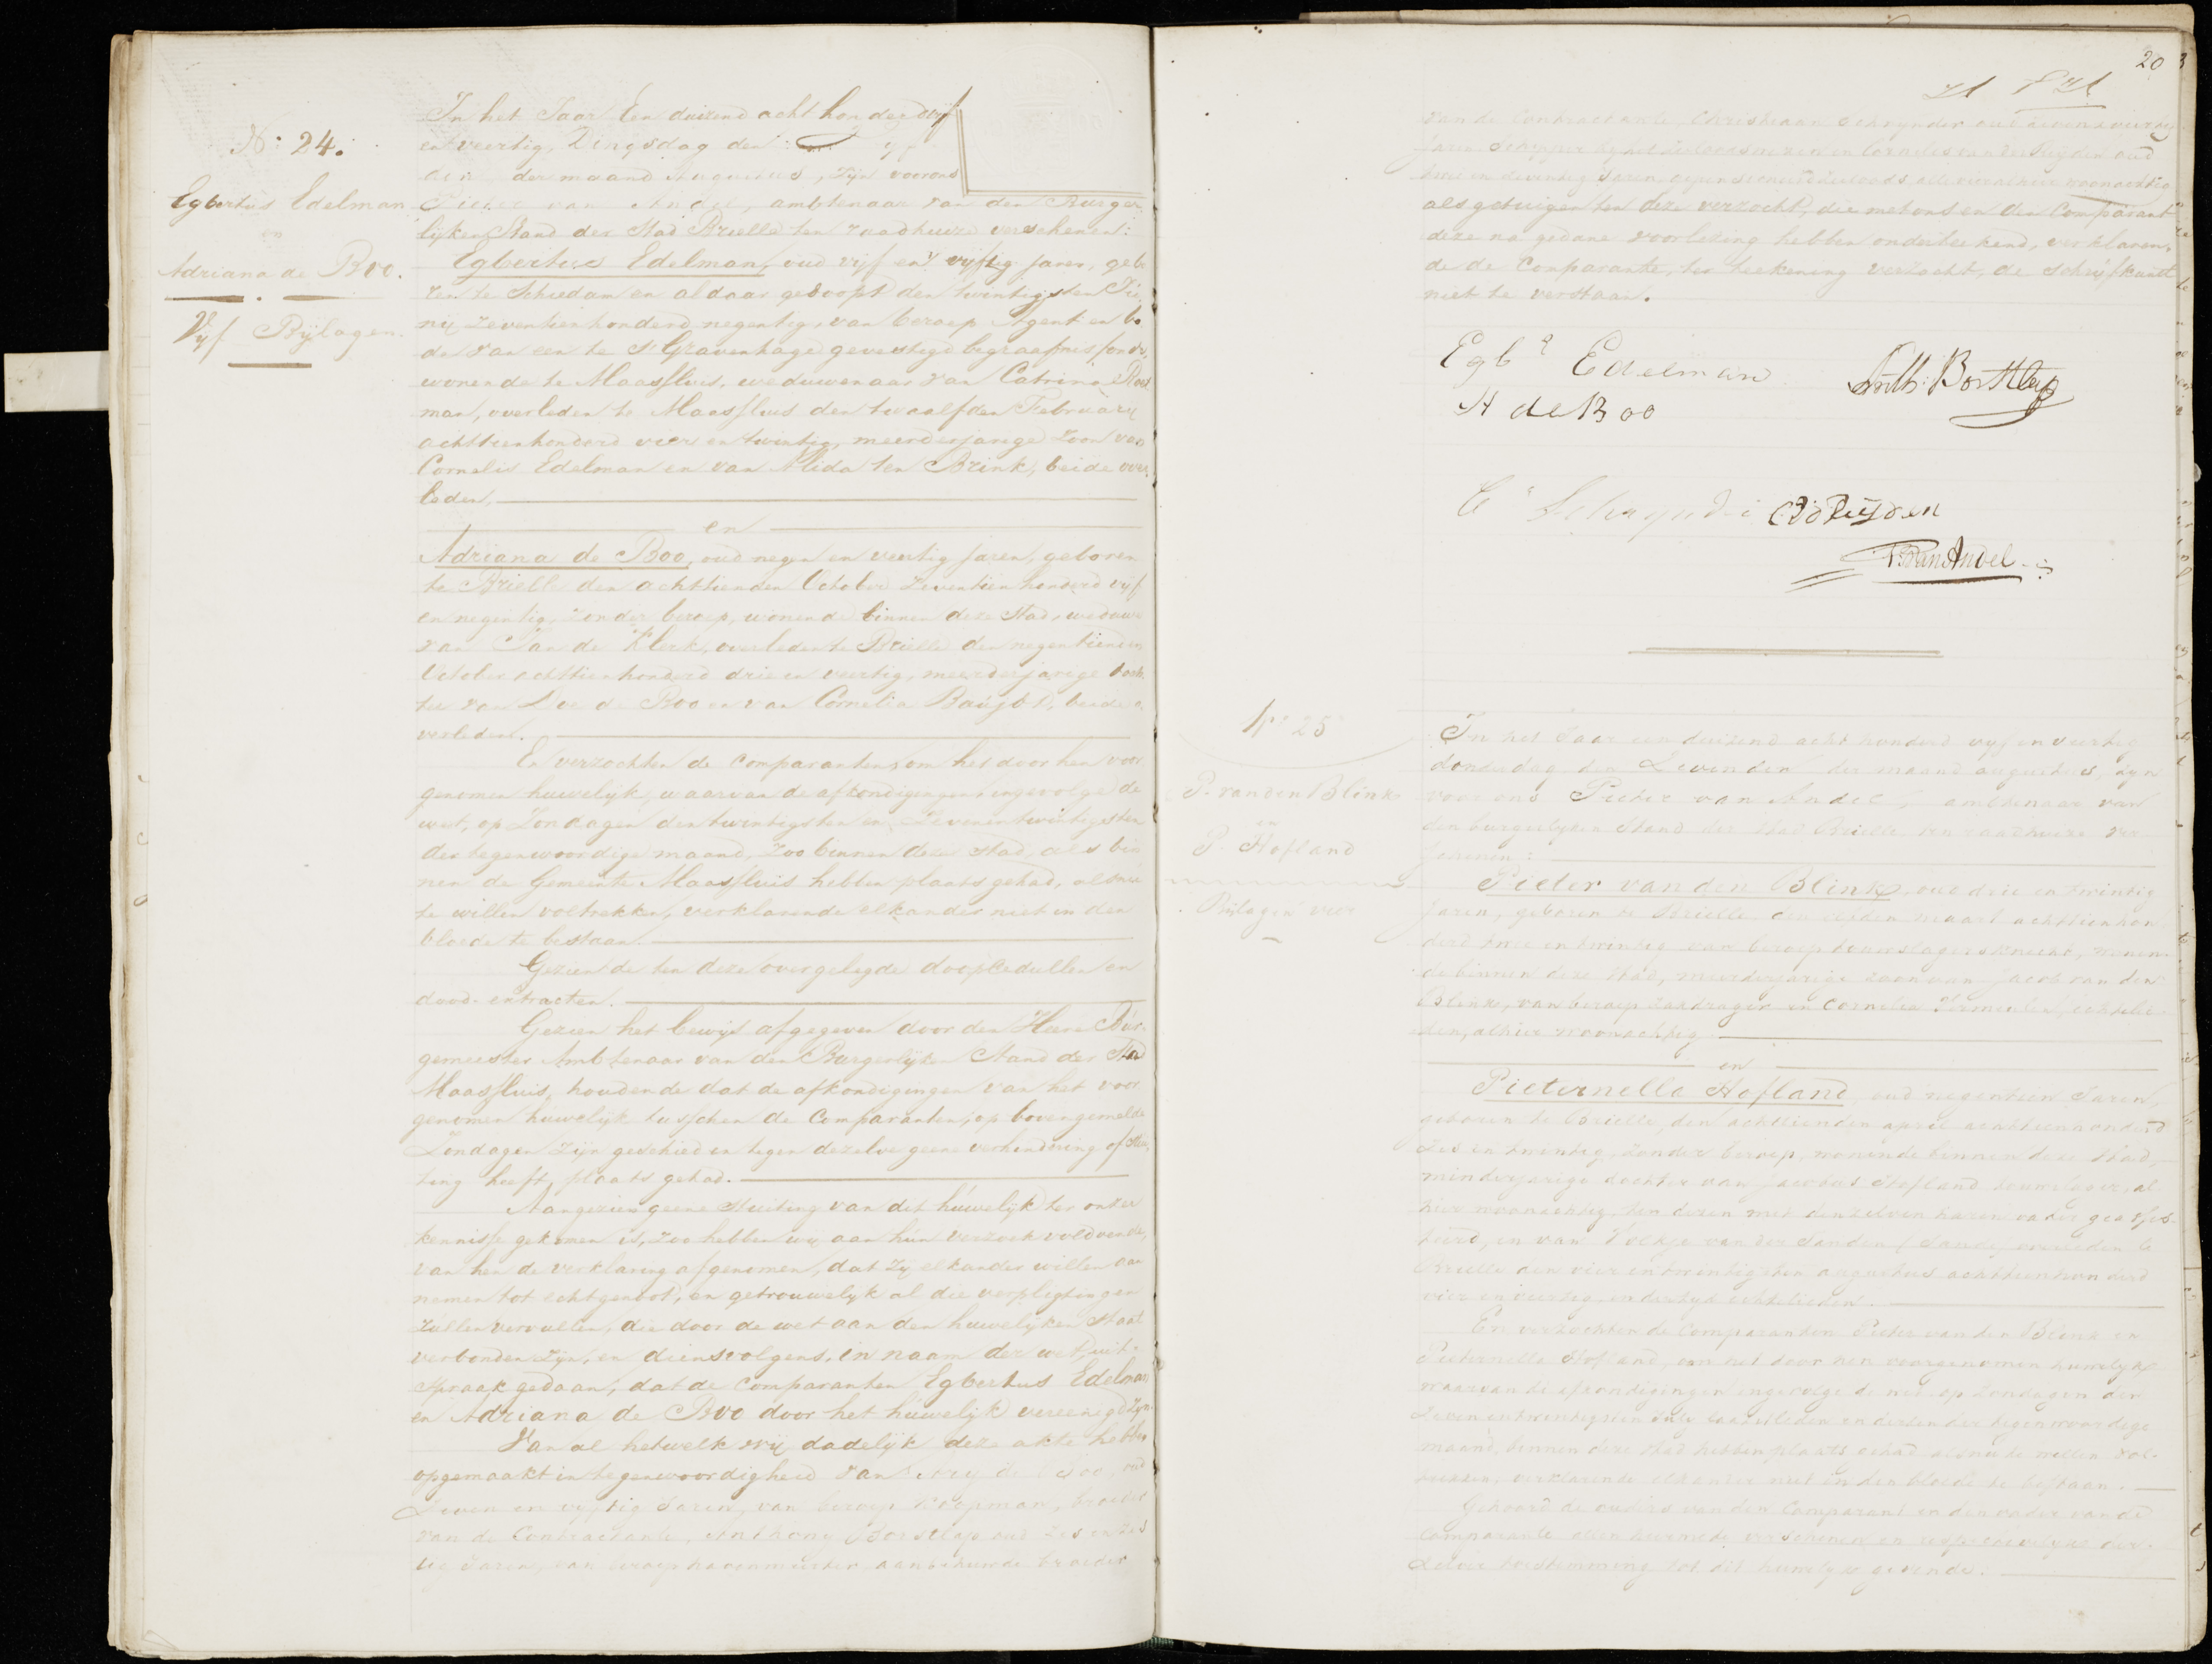 N: 24.
Egbertus Edelman
en
Adriana de Boo.
Vyf Bylagen.
In het Jaar Een duizend acht honderd vijf
en veertig, Dingsdag den
der maand Augustus, zyn voor ons
Pieter van Andel, ambtenaar van den Burger-
lyken Stand der Stad Brielle ten raadhuize verschenen:
Egbertus Edelman, oud vyf en vyftig jaren, gebo-
ren te Schiedam en aldaar gedoopt den twintigsten Ju-
ny zeventienhonderd negentig, van beroep Agent en bo-
de van een te s'Gravenhage gevestigd begrafnisfonds,
wonende te Maassluis, weduwenaar van Catrina Roel
man, overleden te Maassluis den twaalfden February
achttienhonderd vier en twintig, meerderjarige zoon van
Cornelis Edelman en van Alida ten Brink, beide over-
leden,
en
Adriana de Boo, oud negen en veertig jaren, geboren
te Brielle den achttienden October zeventien honderd vyf
en negentig, zonder beroep, wonende binnen deze Stad, weduwe
van Jan de Klerk, overleden te Brielle den negentienden
October achttienhonderd drie en veertig, meerderjarige doch-
ter van de Boo en van Cornelia beide o-
verleden.
En verzochten de Comparanten, om het door hen voor-
genomen huwelyk, waarvan de afkondigingen, ingevolge de
wet, op Zondagen den twintigsten en zevenentwintigsten
der tegenwoordige maand, zoo binnen deze stad, als bin
nen de Gemeente Maassluis hebben plaats gehad, alsnu
te willen voltrekken, verklarende elkander niet in den
bloede te bestaan.
Gezien de ten deze overgelegde doopcedullen en
dood-extracten.
Gezien het bewys afgegeven door den Heere Bur-
gemeester Ambtenaar van den Burgerlyken Stand der Stad
Maassluis, houdende dat de afkondigingen van het voor
genomen huwelyk tusschen de Comparanten, op bovengemelde
Zondagen zyn geschied en tegen dezelve geene verhindering of stui-
ting heeft plaats gehad.
Aangezien geene Stuiting van dit huwelyk ter onzer
kennisse gekomen is, zoo hebben wy aan hun verzoek voldoende,
van hen de verklaring afgenomen, dat zy elkander willen aan
nemen tot echtgenoot, en getrouwelyk al die verpligtingen
zullen vervullen, die door de wet aan den huwelyken Staat
verbonden zyn, en diensvolgens, in naam der wet, uit-
spraak gedaan, dat de Comparanten Egbertus Edelman
en Adriana de Boo door het huwelyk vereenigd zyn.
Van al hetwelk wy dadelyk deze akte hebben
opgemaakt in tegenwoordigheid van Arij de Boo, oud
zeven en vyftig Jaren, van beroep Koopman, broeder
van de Contractante, Anthony Borstlap oud zes en zes
tig Jaren, van beroep havenmeester aanbehuwde broeder
20
van de Contractante Christiaan Schnynder oud zeven en veertig
Jaren Schipper by het Loodswezen en Cornelis van der Ruyden oud
twee en seventig Jaren, gepensioneerd Zeeloods, alle vier alhier woonachtig
als getuigen ten deze verzocht, die met ons en den Comparant
deze na gedane voorlezing hebben onderteekend, verklaren-
de de Comparante, ter teekening verzocht, de schryfkunst
niet te verstaan.
Egbs Edelman
Anth: Borstlap
A de Boo
Cs Schnynder
C v d Ruyden
P. van Andel
No 25
P. van den Blink
en
P. Hofland
Bylagen vier
In het Jaar een duizend acht honderd vyf en veertig
donderdag den Zevenden der maand augustus, zyn
voor ons Pieter van Andel, ambtenaar van
den burgerlyken Stand der Stad Brielle ten raadhuize ver-
schenen:
Pieter van den Blink, oud drie en twintig
Jaren, geboren te Brielle den elfden maart achttienhon-
derd twee en twintig van beroep touwslagersknecht, wonen-
de binnen deze Stad, meerderjarige zoon van Jacob van den
Blink, van beroep zakdrager en Cornelia Vermeulen, echtelie-
den, alhier woonachtig
en
Pieternella Hofland, oud negentien Jaren,
geboren te Brielle, den achttienden april achttienhonderd
zes en twintig, zonder beroep, wonende binnen deze Stad,
minderjarige dochter van Jacobus Hofland touwslager, al
hier woonachtig, ten dezen met denzelven haren vader geassis-
teerd, en van Volkje van der Sanden (Sande) overleden te
Brielle den vier en twintigsten augustus achttienhonderd
vier en veertig, in dertyd echtelieden.
En verzochten de Comparanten Pieter van den Blink en
Pieternella Hofland, om het door hen voorgenomen huwelyk
waarvan de afkondigingen ingevolge de wet op zondagen den
Zevenentwintigsten July laatstleden en derden der tegenwoordige
maand, binnen deze stad hebben plaats gehad alsnu te willen vol-
trekken, verklarende elkander niet in den bloede te bestaan.
Gehoord de ouders van den Comparant en den vader van de
Comparante allen hiermede verschenen en respectivelyk der-
zelver toestemming tot dit huwelyk gevende.